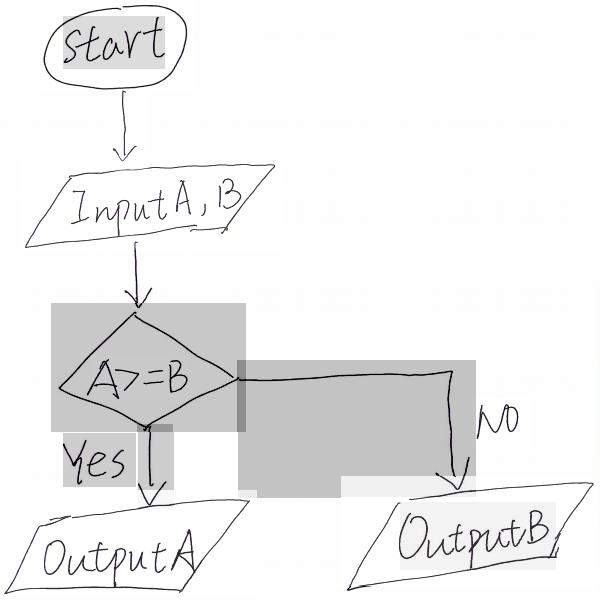 start
Input A, B
A>=B
Yes
NO
Output A
Output B